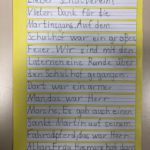 Lieber Bischof
Vielen Dank für die
Martinsgans. Auf dem
Schulhof war ein großes
Feier. Wir sind mit den
Laternen eine Runde über
den Schulhof gegangen.
Dort war ein armer
Mann, das war Herr
Es gab auch einen
Sankt Martin auf seinem
Fahrradpferd, das war Herr